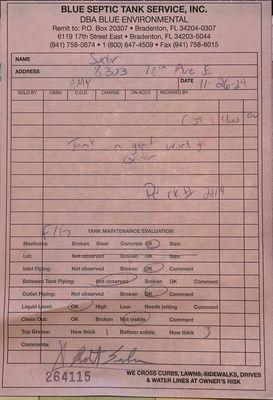 BLUE SEPTIC TANK SERVICE, INC.
DBA BLUE ENVIRONMENTAL
Remit to: P.O. Box 20307 • Bradenton, FL 34204-0307
6119 17th Street East • Bradenton, FL 34203-5044
(941) 758-0674 • 1 (800) 647-4509 • Fax (941) 758-8015
NAME
ADDRESS Ave E
AMY DATE 11-26-24
SOLD BY CASH C.O.D. CHARGE ON ACCT. RECEIVED BY
400 00
Tank in great
Order
Pd ck#
TANK MAINTENANCE EVALUATION
Manholes: Broken Steel Concrete OK Size:
Lid: Not observed Broken OK Size:
Inlet Piping: Not observed Broken OK Comment
Between Tank Piping: Not observed Broken OK Comment
Outlet Piping: Not observed Broken OK Comment
Liquid Level: OK High Low Needs jetting Comment
Clean Out: OK Broken Not visible Comment
Top Grease: How thick 1 Bottom solids: How thick 3
Comments:
X
264115
WE CROSS CURBS, LAWNS, SIDEWALKS, DRIVES
& WATER LINES AT OWNER'S RISK